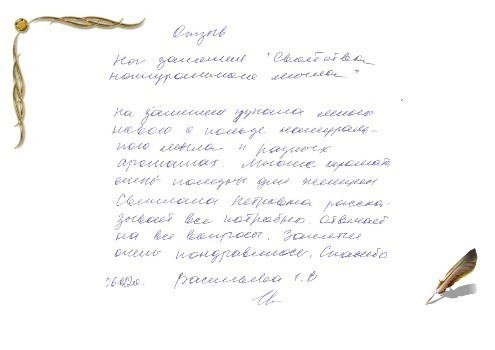 Отзыв
на занятия "Свойства
натурального мыла"
На занятии узнала много
нового о пользе натураль-
ного мыла и разных
ароматах. Многие аромат
очень полезны для женщин
Светлана Петровна расска-
зывает все подробно. Отвечает
на все вопросы. Занятие
очень понравилось. Спасибо
Васильева Г.В